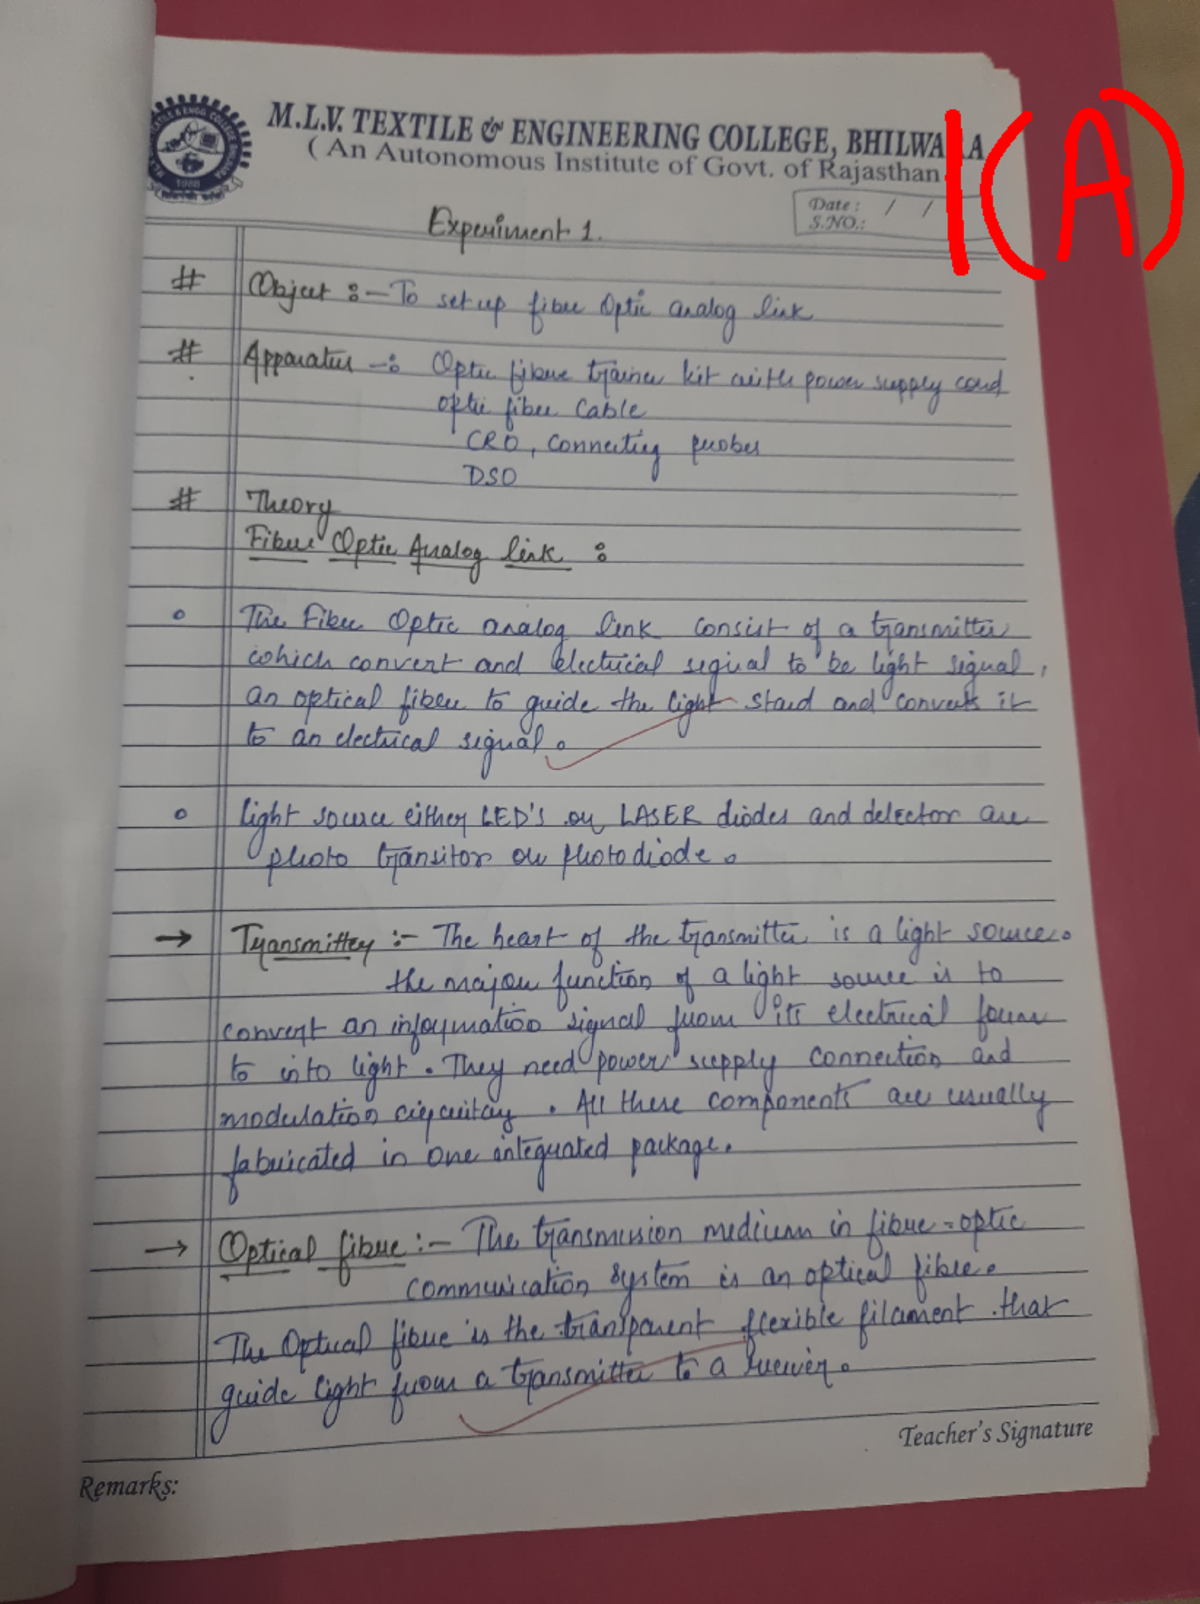 M.L.V. TEXTILE & ENGINEERING COLLEGE, BHILWARA
( An Autonomous Institute of Govt. of Rajasthan
1(A)
Date : / /
S.NO.:
Experiment 1.
# Object :- To set up fiber Optic analog link
# Apparatus -: Optic fiber trainer kit with power supply cord
optic fiber Cable
CRO, connecting probes
DSO
# Theory
Fiber Optic Analog link :
o The Fiber Optic analog link consist of a transmitter
which convert and electrical signal to be light signal,
an optical fiber to guide the light stand and converts it
to an electrical signal.
o light source either LED's or LASER diodes and detector are
photo transitor or photodiode.
→ Transmitter :- The heart of the transmitter is a light source.
the major function of a light source is to
convert an information signal from its electrical form
to into light. They need power supply connection and
modulation circuitry. All these components are usually
fabricated in one integrated package.
→ Optical fibre :- The transmission medium in fibre-optic
communication system is an optical fibre.
The Optical fibre is the transparent flexible filament that
guide light from a transmitter to a
Teacher's Signature
Remarks: